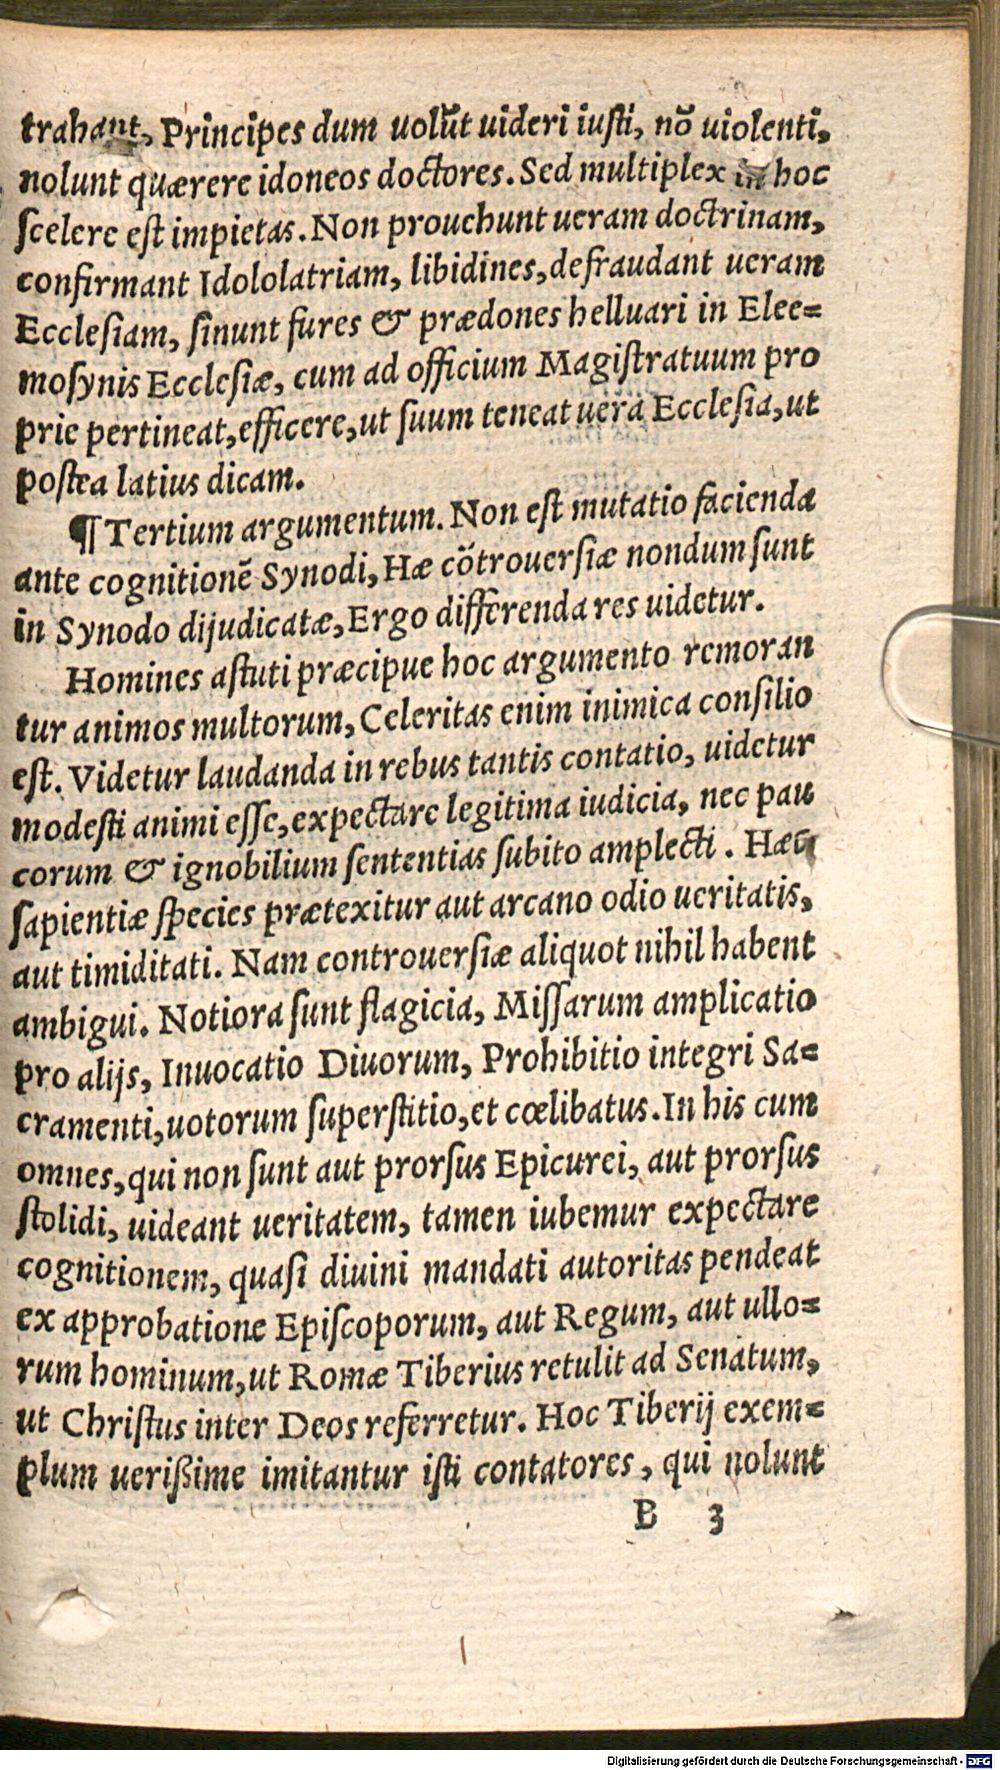 trahant, Principes dum uolūt uideri iusti, nō uiolenti,
nolunt quærere idoneos doctores. Sed multiplex in hoc
scelere est impietas. Non prouehunt ueram doctrinam,
confirmant Idololatriam, libidines, defraudant ueram
Ecclesiam, sinunt fures & prædones helluari in Elee=
mosynis Ecclesiæ, cum ad officium Magistratuum pro
prie pertineat, efficere, ut suum teneat uera Ecclesia, ut
postea latius dicam.
¶ Tertium argumentum. Non est mutatio facienda
ante cognitionē Synodi, Hæ cōtrouersiæ nondum sunt
in Synodo dijudicatæ, Ergo differenda res uidetur.
Homines astuti præcipue hoc argumento remoran
tur animos multorum, Celeritas enim inimica consilio
est. Videtur laudanda in rebus tantis contatio, uidetur
modesti animi esse, expectare legitima iudicia, nec pau
corum & ignobilium sententias subito amplecti. Hæc
sapientiæ species prætexitur aut arcano odio ueritatis,
aut timiditati. Nam controuersiæ aliquot nihil habent
ambigui. Notiora sunt flagicia, Missarum amplicatio
pro alijs, Inuocatio Diuorum, Prohibitio integri Sa=
cramenti, uotorum superstitio, et cœlibatus. In his cum
omnes, qui non sunt aut prorsus Epicurei, aut prorsus
stolidi, uideant ueritatem, tamen iubemur expectare
cognitionem, quasi diuini mandati autoritas pendeat
ex approbatione Episcoporum, aut Regum, aut ullo=
rum hominum, ut Romæ Tiberius retulit ad Senatum,
ut Christus inter Deos referretur. Hoc Tiberij exem=
plum uerißime imitantur isti contatores, qui nolunt
B 3
Digitalisierung gefördert durch die Deutsche Forschungsgemeinschaft - DFG